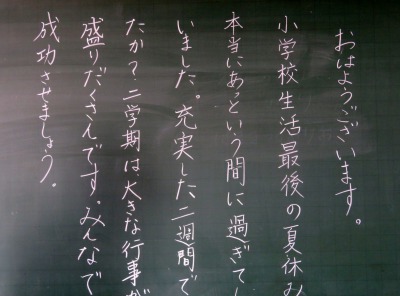 おはようございます。
小学校生活最後の夏休み
本当にあという間に過ぎてし
いました。充実した二週間で
たか？二学期は、大きな行事が
盛りだくさんです。みんなで
成功させましょう。